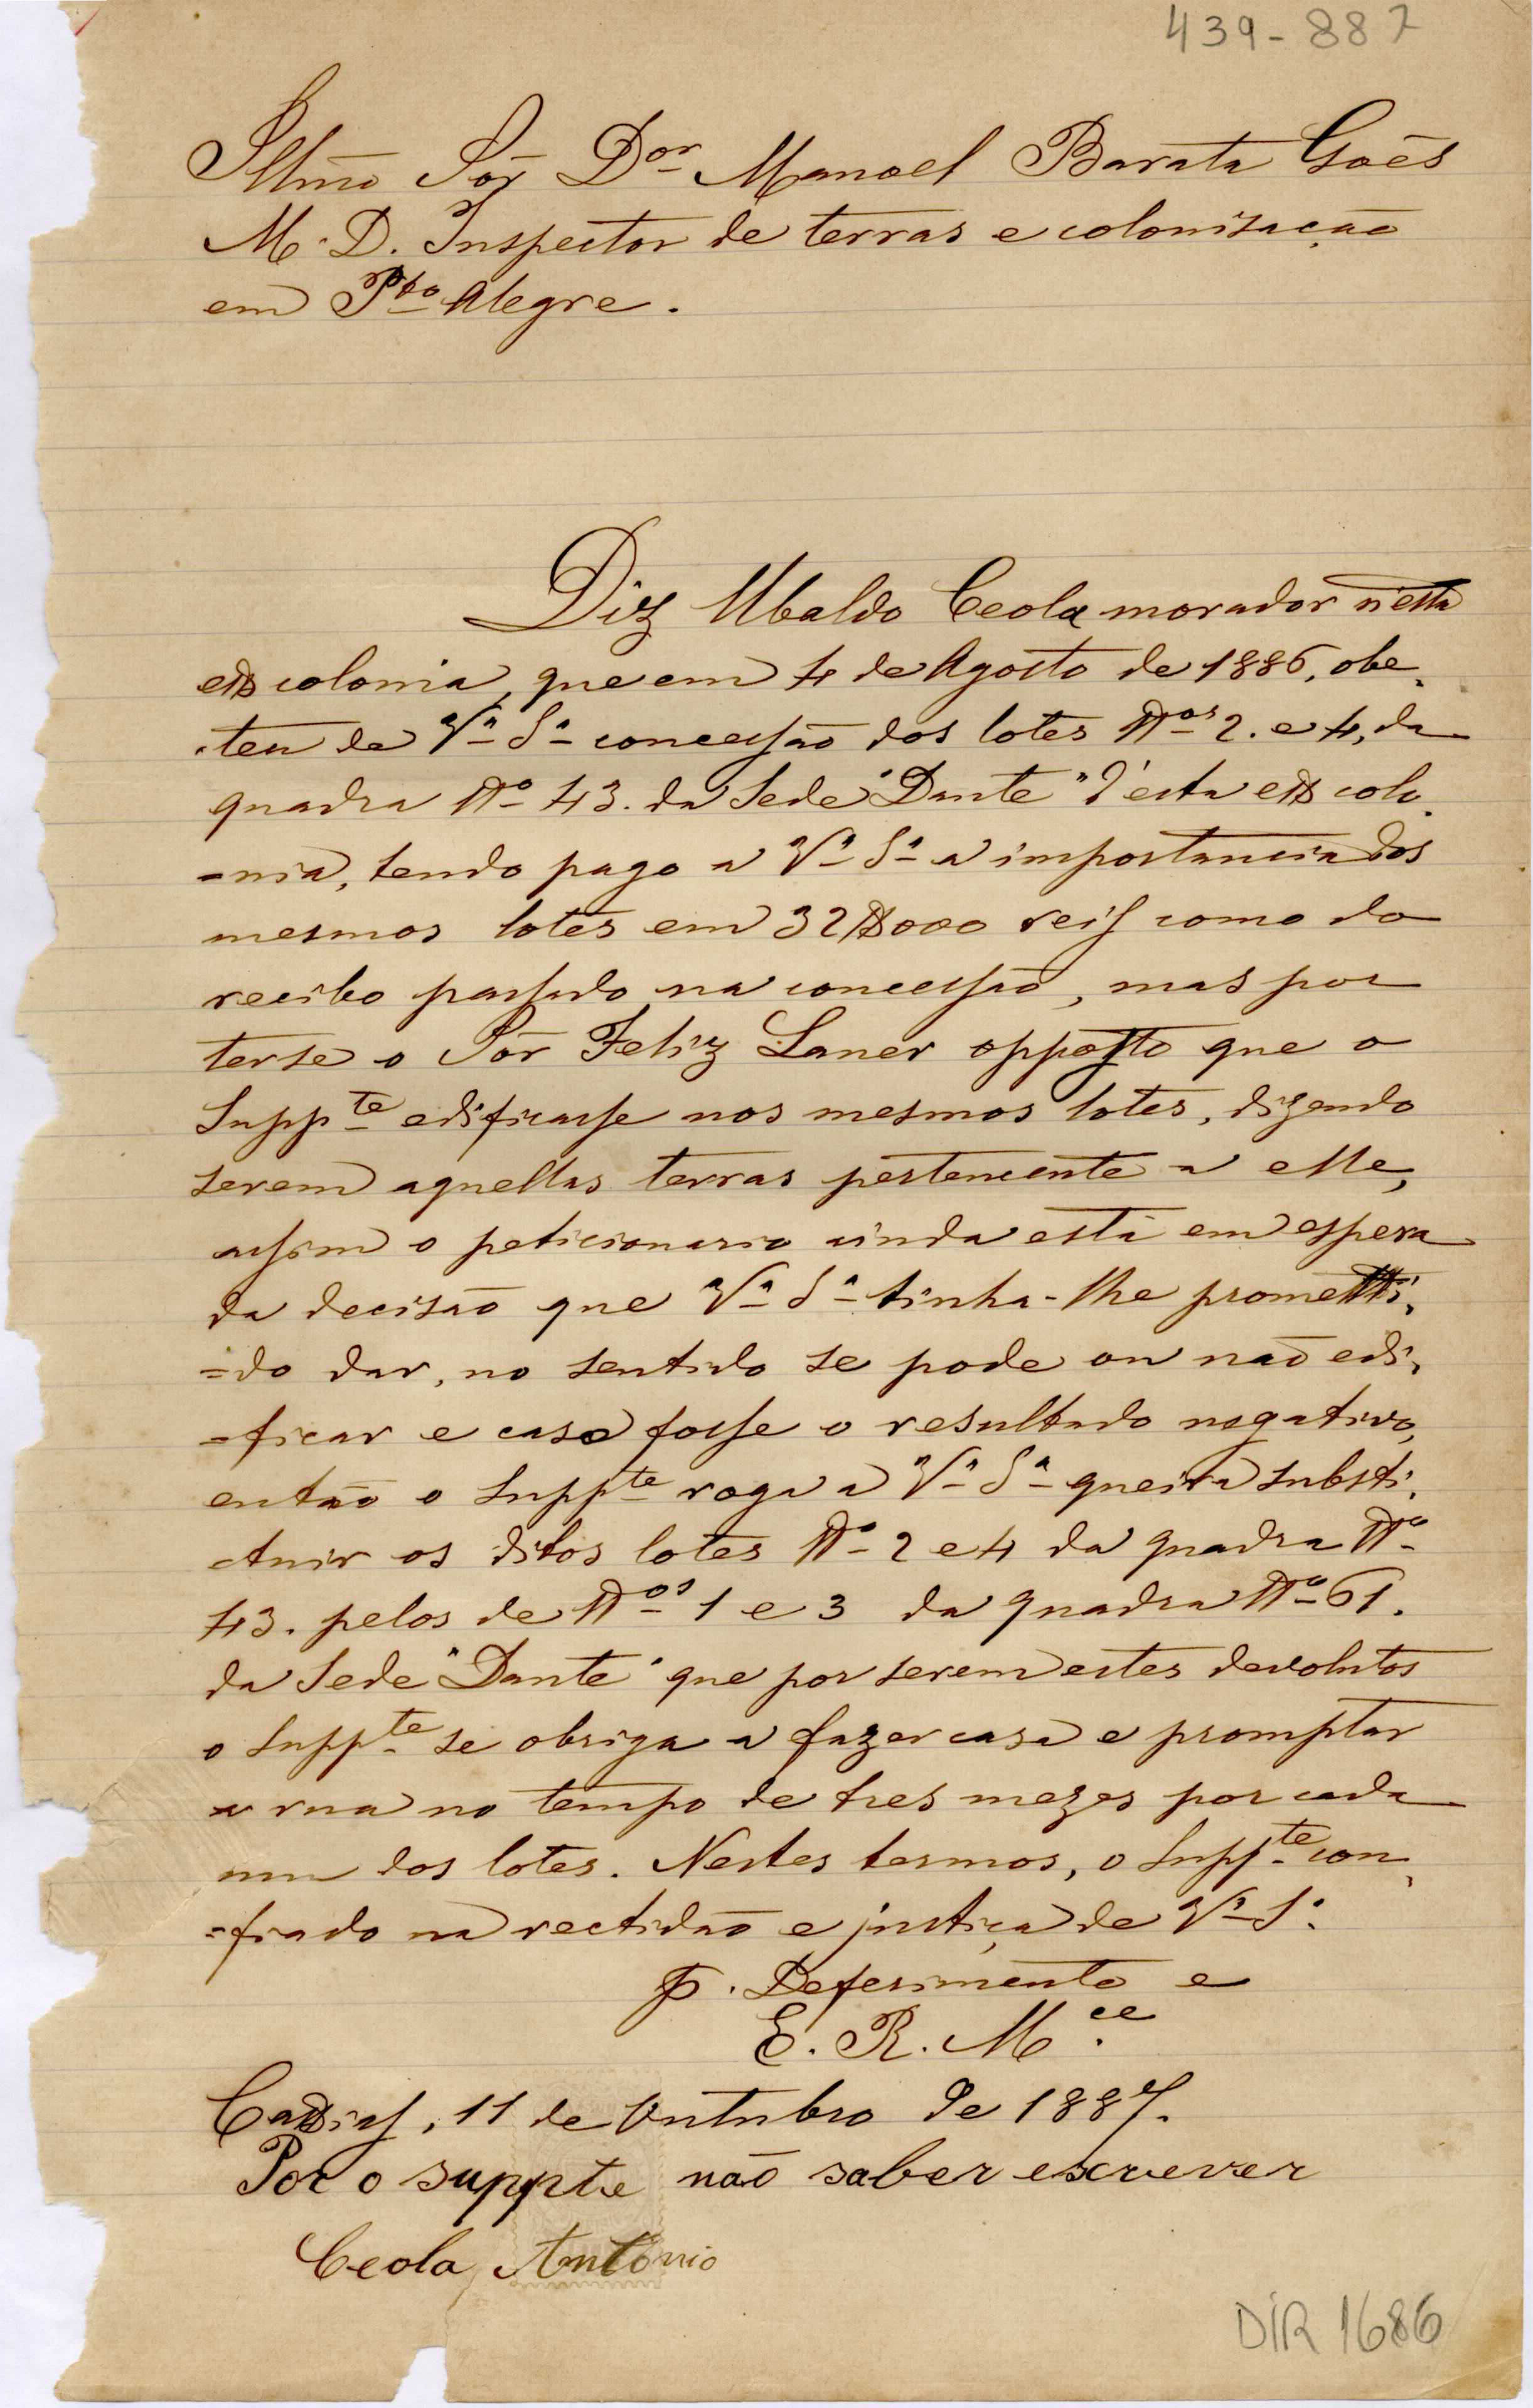 439-887
Illmo Sõr Dor Manoel Barata Goês
M. D. Inspector de terras e colonisação
em Pto Alegre.
Diz Ubaldo Ceola morador n'esta
ex colonia, que em 4 de Agosto de 1886, obe-
-teu de Va Sa concessão dos lotes Nos 2. e 4, da
quadra No 43. da Sede "Dante" d'esta ex colo-
-nia, tendo pago a Va Sa a importancia dos
mesmos lotes em 32$000 reis como do
recibo passado na concessão, mas por
terse o Sõr Feliz Laner opposto que o
Suppte edificasse nos mesmos lotes, dizendo
serem aquellas terras pertencente a elle,
assim o peticionario ainda está em espera
da decisão que Va Sa tinha-lhe prometti-
-do dar, no sentido se pode ou não edi-
-ficar e caso fosse o resultado negativo,
então o Suppte roga a Va Sa queira substi-
-tuir os ditos lotes No 2 e 4 da quadra No
43. pelos de Nos 1 e 3 da quadra No 61.
da Sede "Dante" que por serem estes devolutos
o Suppte se obriga a fazer casa e promptar
a rua no tempo de tres mezes por cada
um dos lotes. Nestes termos, o Suppte con-
-fiado na rectidão e justiça de Va Sa.
P. Deferimento e
E. R. Mce.
Caxias, 11 de Outubro de 1887.
Por o suppte não saber escrever
Ceola Antonio
DIR 1686